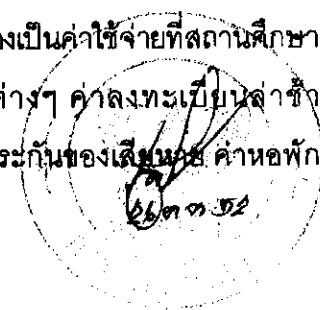 งเป็นค่าใช้จ่ายที่สถานศึกษา
ต่างๆ ค่าลงทะเบียนล่าช้า
ระกันของเสียหาย ค่าหอพัก